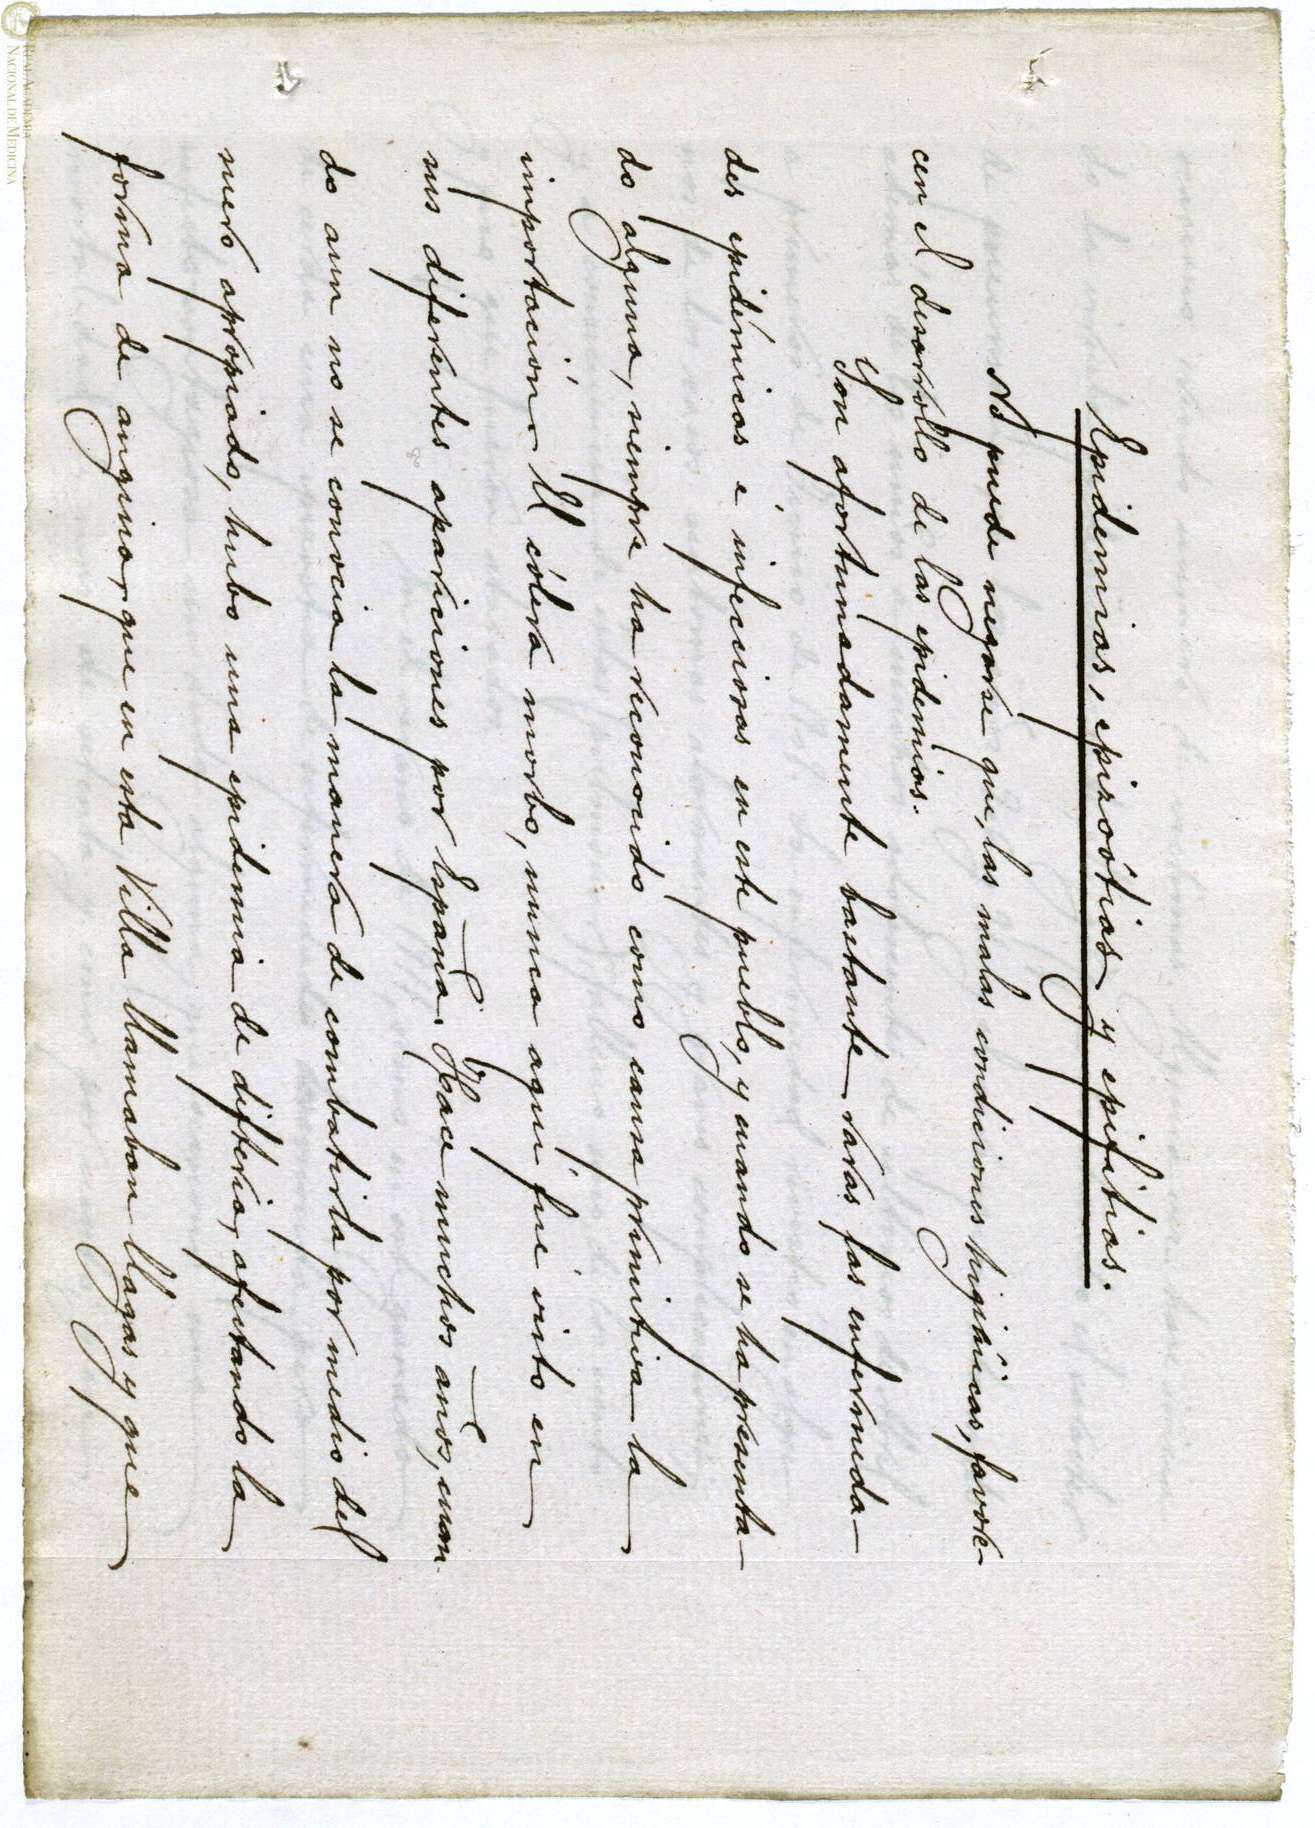 Epidemias, epizoótias y epifitias.
No puede negarse que, las malas condiciones higiénicas, favore-
cen el desarrollo de las epidemias.
Son afortunadamente bastante raras las enfermeda-
des epidémicas é infecciosas en este pueblo, y cuando se ha presenta-
do alguna, siempre ha reconocido como causa primitiva la
importación. El cólera morbo, nunca aquí fué visto en
sus diferentes apariciones por España. Hace muchos años, cuan-
do aun no se conocia la manera de combatirla por medio del
suero apropiado, hubo una epidemia de difteria, afectando la
forma de angina, que en esta Villa llamaban llagas y que
REAL ACADEMIA
NACIONAL DE MEDICINA